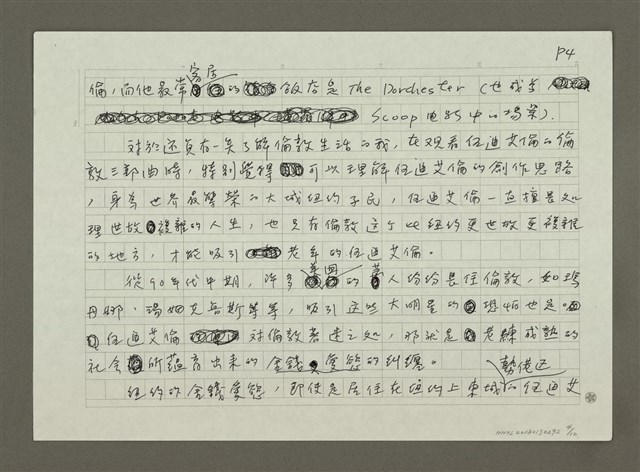 P4
客居
倫,而他最常的飯店是The Dorchester(也成爲
Scoop电影中的場景)。
對於还算有一点了解倫敦生活的我,在观看伍迪艾倫的倫
敦三部曲時,特別覺得可以理解伍迪艾倫的創作思路
,身為世界最繁榮的大城紐約子民,伍迪艾倫一直擅長处
理世故複雜的人生,也只有倫敦这个比紐約更世故更複雜
的地方,才能吸引老年的伍迪艾倫。
英国
從90年代中期,許多的人纷纷長住倫敦,如瑪
丹娜、湯姆克鲁斯等等,吸引这些大明星的恐怕也是
伍迪艾倫對倫敦著迷之处,那就是老練成熟的
社会所蘊育出來的金錢爱慾的糾纏。
勢僂区
紐約的金錢爱慾,即使是居住在紐約上東城的伍迪艾